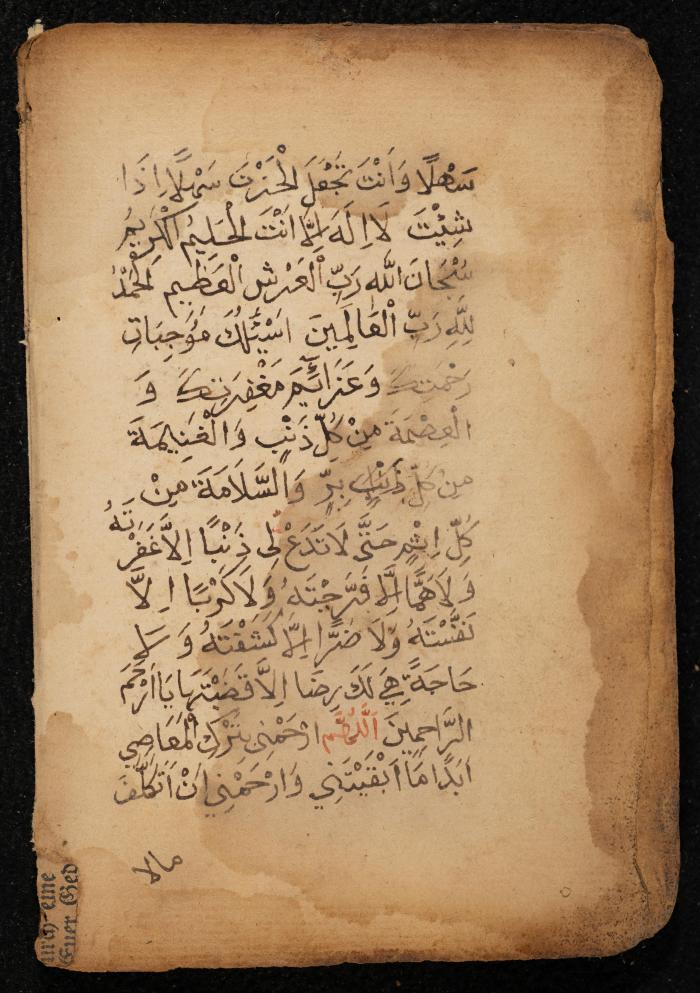 سَهْلًا وَاَنْتَ تَجْعَلُ الْحَزْنَ سَهْلًا اِذَا
شِئْتَ لَا اِلَهَ اِلَّا اَنْتَ الْحَلِيمُ الْكَرِيمُ
سُبْحَانَ اللَّهِ رَبِّ الْعَرْشِ الْعَظِيمِ الْحَمْدُ
لِلَّهِ رَبِّ الْعَالَمِينَ اَسْئَلُكَ مُوجِبَاتِ
رَحْمَتِكَ وَعَزَائِمَ مَغْفِرَتِكَ وَ
الْعِصْمَةَ مِنْ كُلِّ ذَنْبٍ وَالْغَنِيمَةَ
مِنْ كُلِّ ذَنْبٍ بِرٍّ وَالسَّلَامَةَ مِنْ
كُلِّ اِثْمٍ حَتَّى لَا تَدَعْ لِي ذَنْبًا اِلَّا غَفَرْتَهُ
وَلَا هَمًّا اِلَّا فَرَّجْتَهُ وَلَا كَرْبًا اِلَّا
نَفَّسْتَهُ وَلَا ضَرًّا اِلَّا كَشَفْتَهُ وَلَا
حَاجَةً هِيَ لَكَ رِضًا اِلَّا قَضَيْتَهَا يَا اَرْحَمَ
الرَّاحِمِينَ اَللَّهُمَّ ارْحَمْنِي بِتَرْكِ الْمَعَاصِي
اَبَدًا مَا اَبْقَيْتَنِي وَارْحَمْنِي اَنْ اَتَكَلَّفَ
مالا
urch eine
Euer Ged